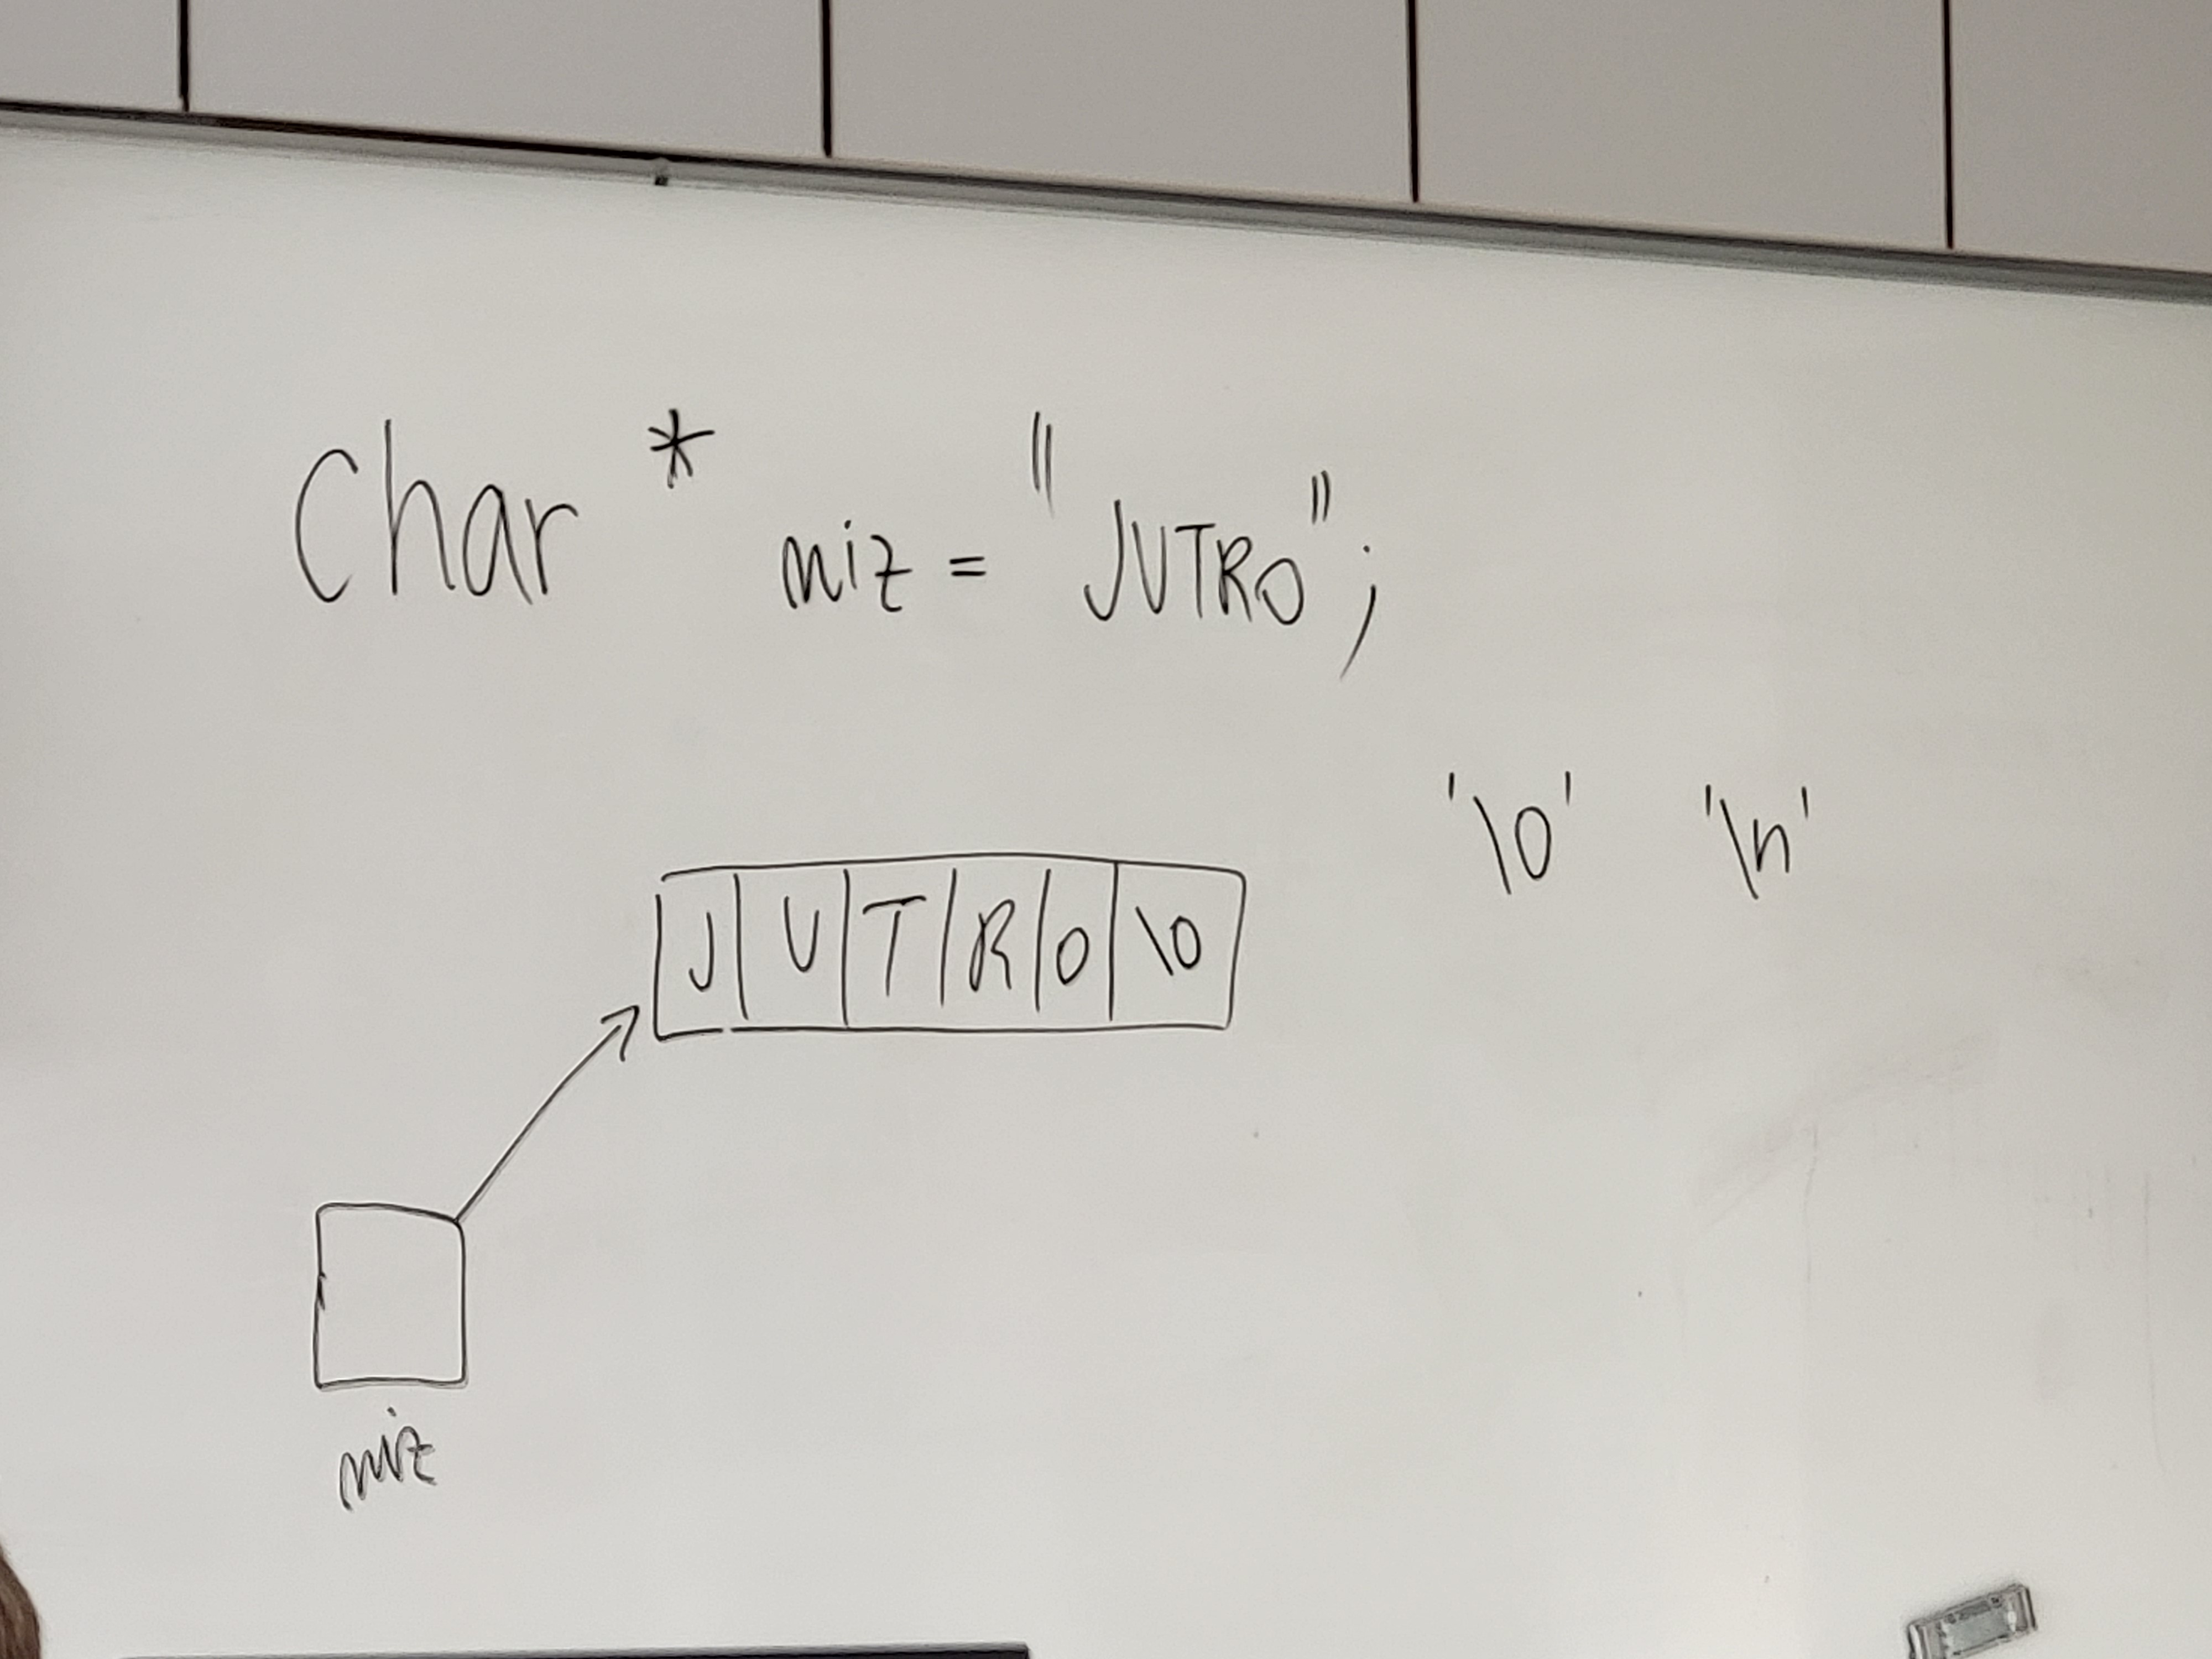 Char * niz = "JUTRO";
'\0' '\n'
J U T R O \0
niz